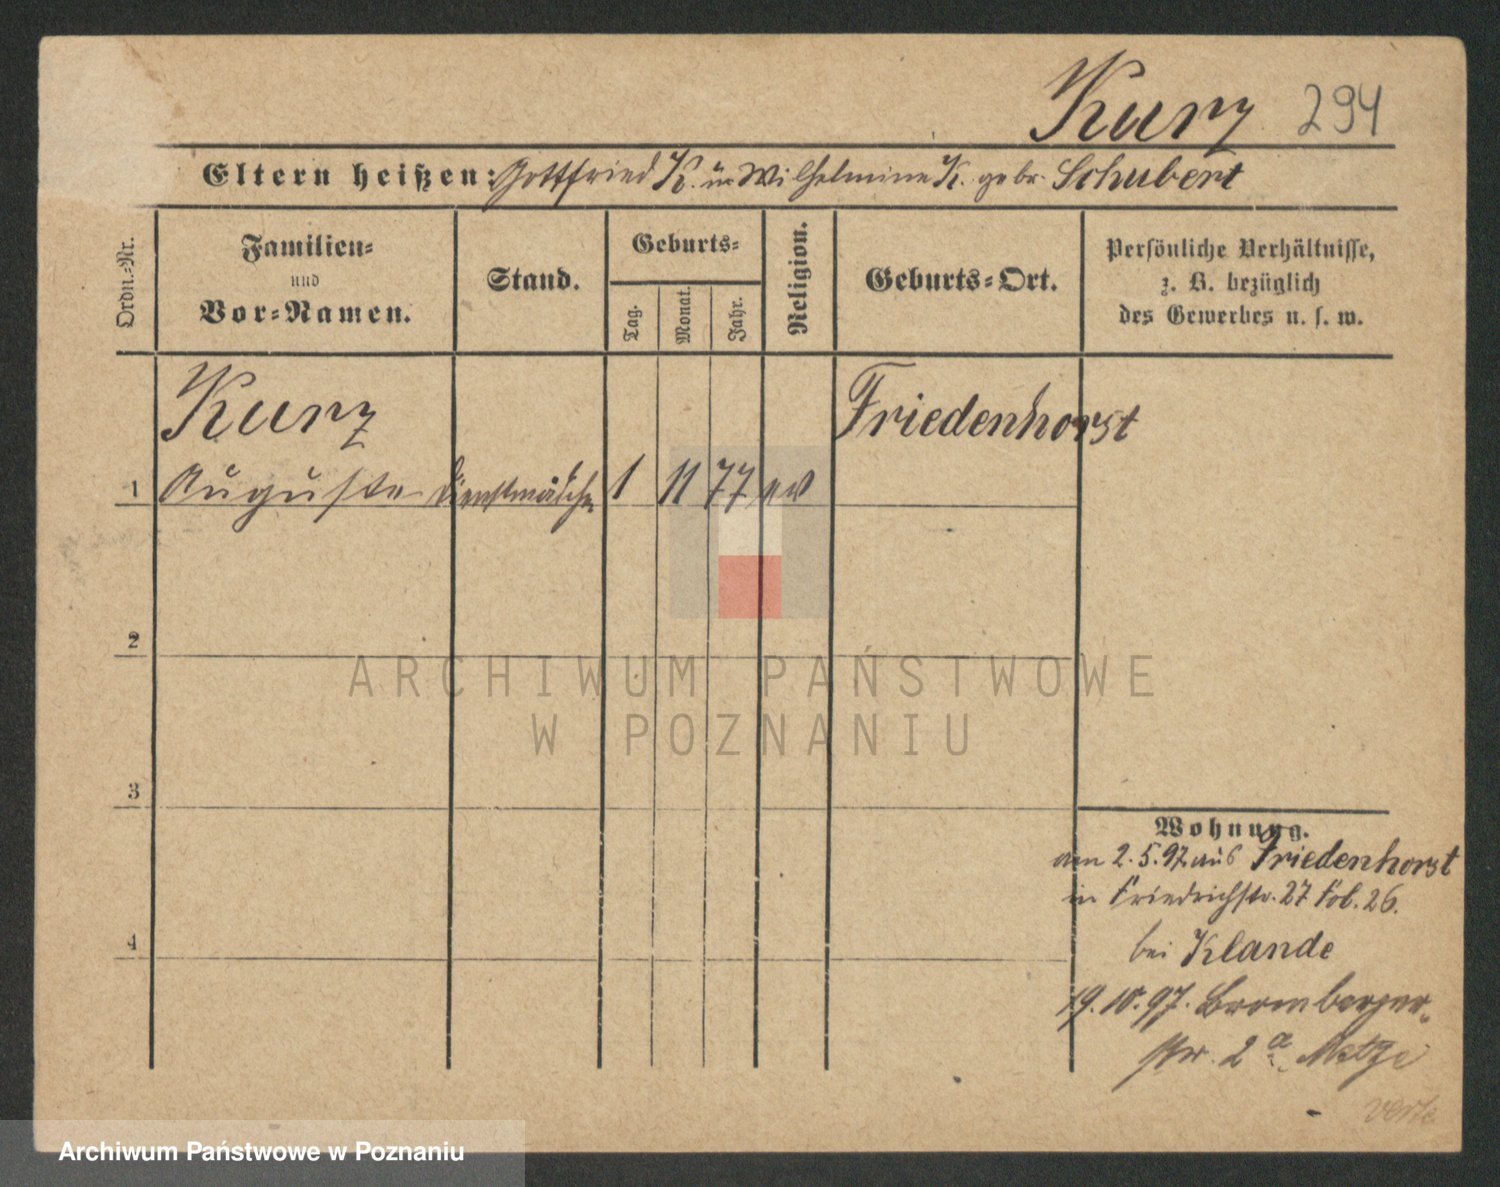 Kurz 294
Eltern heißen: Gottfried K. u. Wilhelmine K. gebr. Schubert
Ordn.-Nr.
Familien-
und
Vor-Namen.
Stand.
Geburts-
Tag.
Monat.
Jahr.
Religion.
Geburts-Ort.
Persönliche Verhältnisse,
z. B. bezüglich
des Gewerbes u. s. w.
Kurz
Friedenhorst
1 Auguste Dienstmädchen 1 11 77 ev
2
ARCHIWUM PAŃSTWOWE
W POZNANIU
3
Wohnung.
am 2.5.97 aus Friedenhorst
in Friedrichstr. 27 Fol. 26.
4
bei Klande
19.10.97. Bromberger-
str. 2 a Metze
verte
Archiwum Państwowe w Poznaniu